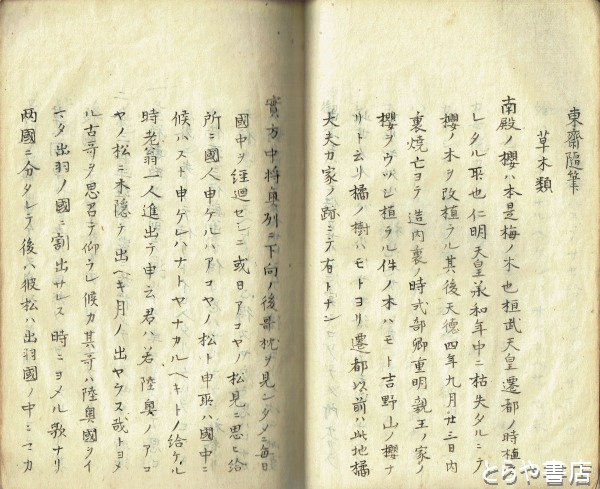 東齋隨筆
草木類
南殿ノ櫻ハ本是梅ノ木也桓武天皇遷都ノ時植ラ
レタル所也仁明天皇承和年中ニ枯失タルニテ
櫻ノ木ヲ改植ラル其後天德四年九月廿三日内
裏燒亡ヨテ造内裏ノ時式部卿重明親王ノ家ノ
櫻ヲウツシ植ラル件ノ木ハモト吉野山ノ櫻ナ
リト云リ橘ノ樹ハモトヨリ遷都以前ハ此地橘
大夫カ家ノ跡ニテ有トナン
實方中將奥州ニ下向ノ後哥枕ヲ見ンタメニ毎日
國中ヲ經迴セシニ或日アコヤノ松見ニ思ヒ給
所ニ國人申ケルハアコヤノ松ト申所ハ國中ニ
候ハスト申ケレハナトヤナカルヘキトノ給ケル
時老翁一人進出テ申云君ハ若陸奥ノアコ
ヤノ松ニ木隱テ出ヘキ月ノ出ヤラヌ哉トヨメ
ル古哥ヲ思召テ仰ラレ候カ其哥ハ陸奥國ヲイ
マタ出羽ノ國ニ割出サレス時ニヨメル歌ナリ
两國ニ分タレテ後ハ彼松ハ出羽國ノ中ニマカ
とらや書店